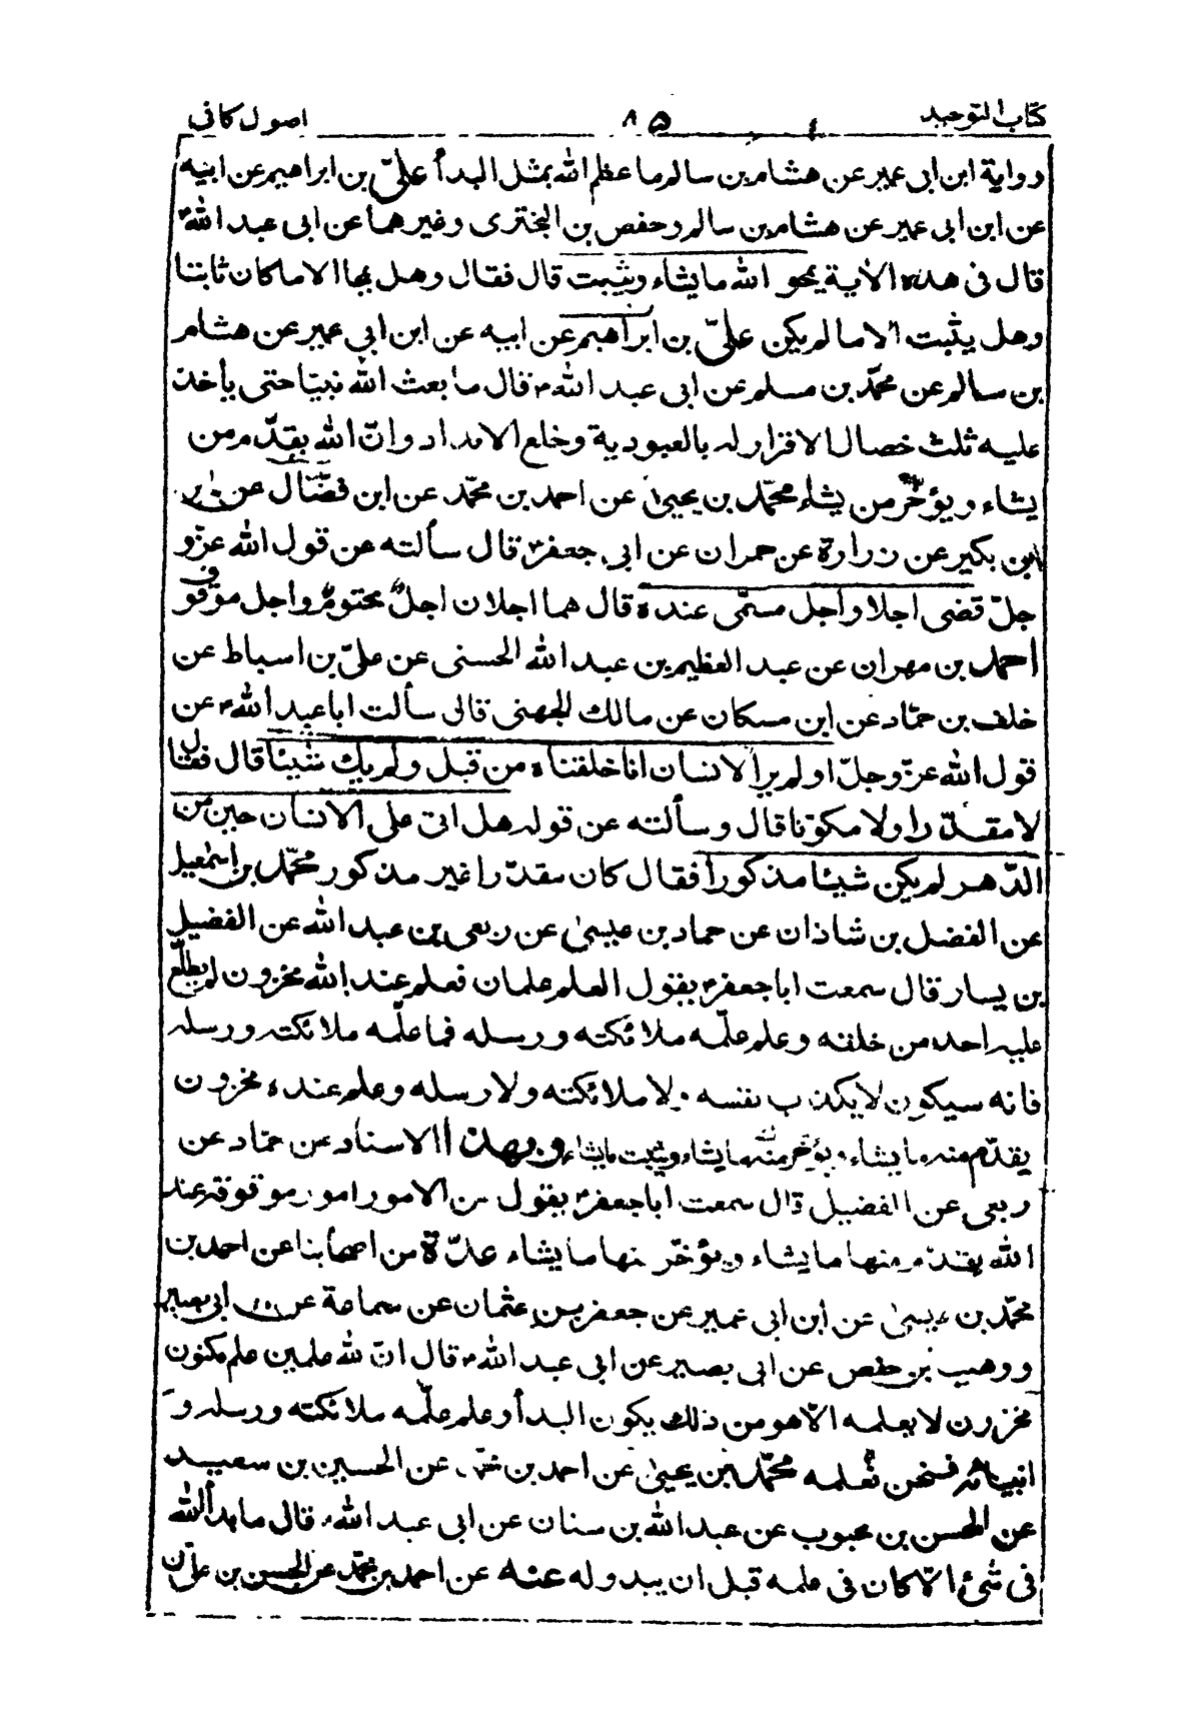 كتاب التوحيد ٨٥ اصول كافى
رواية ابن ابى عمير عن هشام بن سالم ما عظم الله بمثل البدأ علىّ بن ابراهيم عن ابيه
عن ابن ابى عمير عن هشام بن سالم وحفص بن البخترى وغيرهما عن ابى عبد الله ع
قال فى هذه الاية يمحو الله ما يشاء ويثبت قال فقال وهل يمحا الا ما كان ثابتا
وهل يثبت الا ما لم يكن علىّ بن ابراهيم عن ابيه عن ابن ابي عمير عن هشام
بن سالم عن محمّد بن مسلم عن ابى عبد الله ع قال ما بعث الله نبيّا حتى يأخذ
عليه ثلث خصال الاقرار له بالعبودية وخلع الانداد وانّ الله يقدّم من
يشاء ويؤخّر من يشاء محمّد بن يحيىٰ عن احمد بن محمّد عن ابن فضّال عن
ابن بكير عن زرارة عن حمران عن ابى جعفر ع قال سألته عن قول الله عزّ و
جلّ قضى اجلا واجل مسمّى عنده قال هما اجلان اجلٌ محتومٌ واجل موقوف
احمد بن مهران عن عبد العظيم بن عبد الله الحسنى عن علىّ بن اسباط عن
خلف بن حمّاد عن ابن مسكان عن مالك الجهنى قال سألت ابا عبد الله ع عن
قول الله عزّ وجلّ اولم ير الانسان انا خلقناه من قبل ولم يك شيئا قال فقال
لا مقدّرا ولا مكوّنا قال وسألته عن قوله هل اتى على الانسان حين من
الدّهر لم يكن شيئا مذكورا فقال كان مقدّرا غير مذكور محمّد بن اسمعيل
عن الفضل بن شاذان عن حماد بن عيسىٰ عن ربعى بن عبد الله عن الفضيل
بن يسار قال سمعت ابا جعفر ع يقول العلم علمان فعلم عند الله مخزون لم يطلّع
عليه احد من خلقه وعلم علّمه ملائكته ورسله فما علّمه ملائكته ورسله
فانه سيكون لا يكذب نفسه ولا ملائكته ولا رسله وعلم عنده مخزون
يقدّم منه ما يشاء ويؤخّر منه ما يشاء ويثبت ما يشاء وبهذا الاسناد عن حمّاد عن
ربعى عن الفضيل قال سمعت ابا جعفر ع يقول من الامور امور موقوفة عند
الله يقدّم منها ما يشاء ويؤخّر منها ما يشاء عدّة من اصحابنا عن احمد بن
محمّد بن عيسىٰ عن ابن ابى عمير عن جعفر بن عثمان عن سماعة عن ابى بصير
ووهيب بن حفص عن ابى بصير عن ابى عبد الله ع قال انّ لله علمين علم مكنون
مخزون لا يعلمه الّا هو من ذلك يكون البدأ وعلم علّمه ملائكته ورسله و
انبيائه فنحن نعلمه محمّد بن يحيىٰ عن احمد بن محمّد عن الحسين بن سعيد
عن الحسن بن محبوب عن عبد الله بن سنان عن ابى عبد الله ع قال ما بدأ لله
فى شئ الّا كان فى علمه قبل ان يبدو له عنه عن احمد بن محمّد عن الحسن بن علىّ بن